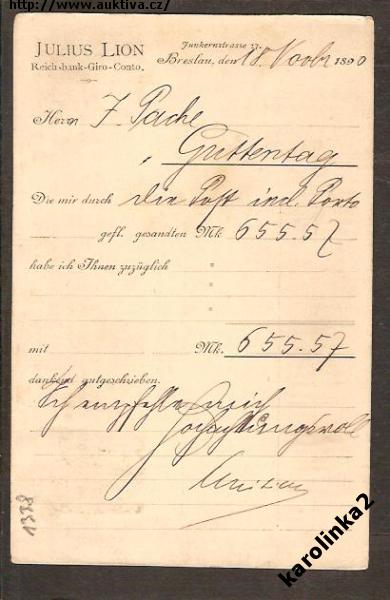 http://www.auktiva.cz/
JULIUS LION
Reichsbank-Giro-Conto.
Junkernstrasse 17.
Breslau, den 18. Novbr 1890
Herrn J. Pache
Guttentag
Die mir durch die Post incl. Porto
gefl. gesandten Mk 655.57
habe ich Ihnen zuzüglich
mit Mk. 655.57
dankend gutgeschrieben.
Ich empfehle mich
hochachtungsvoll
1378
karolinka2